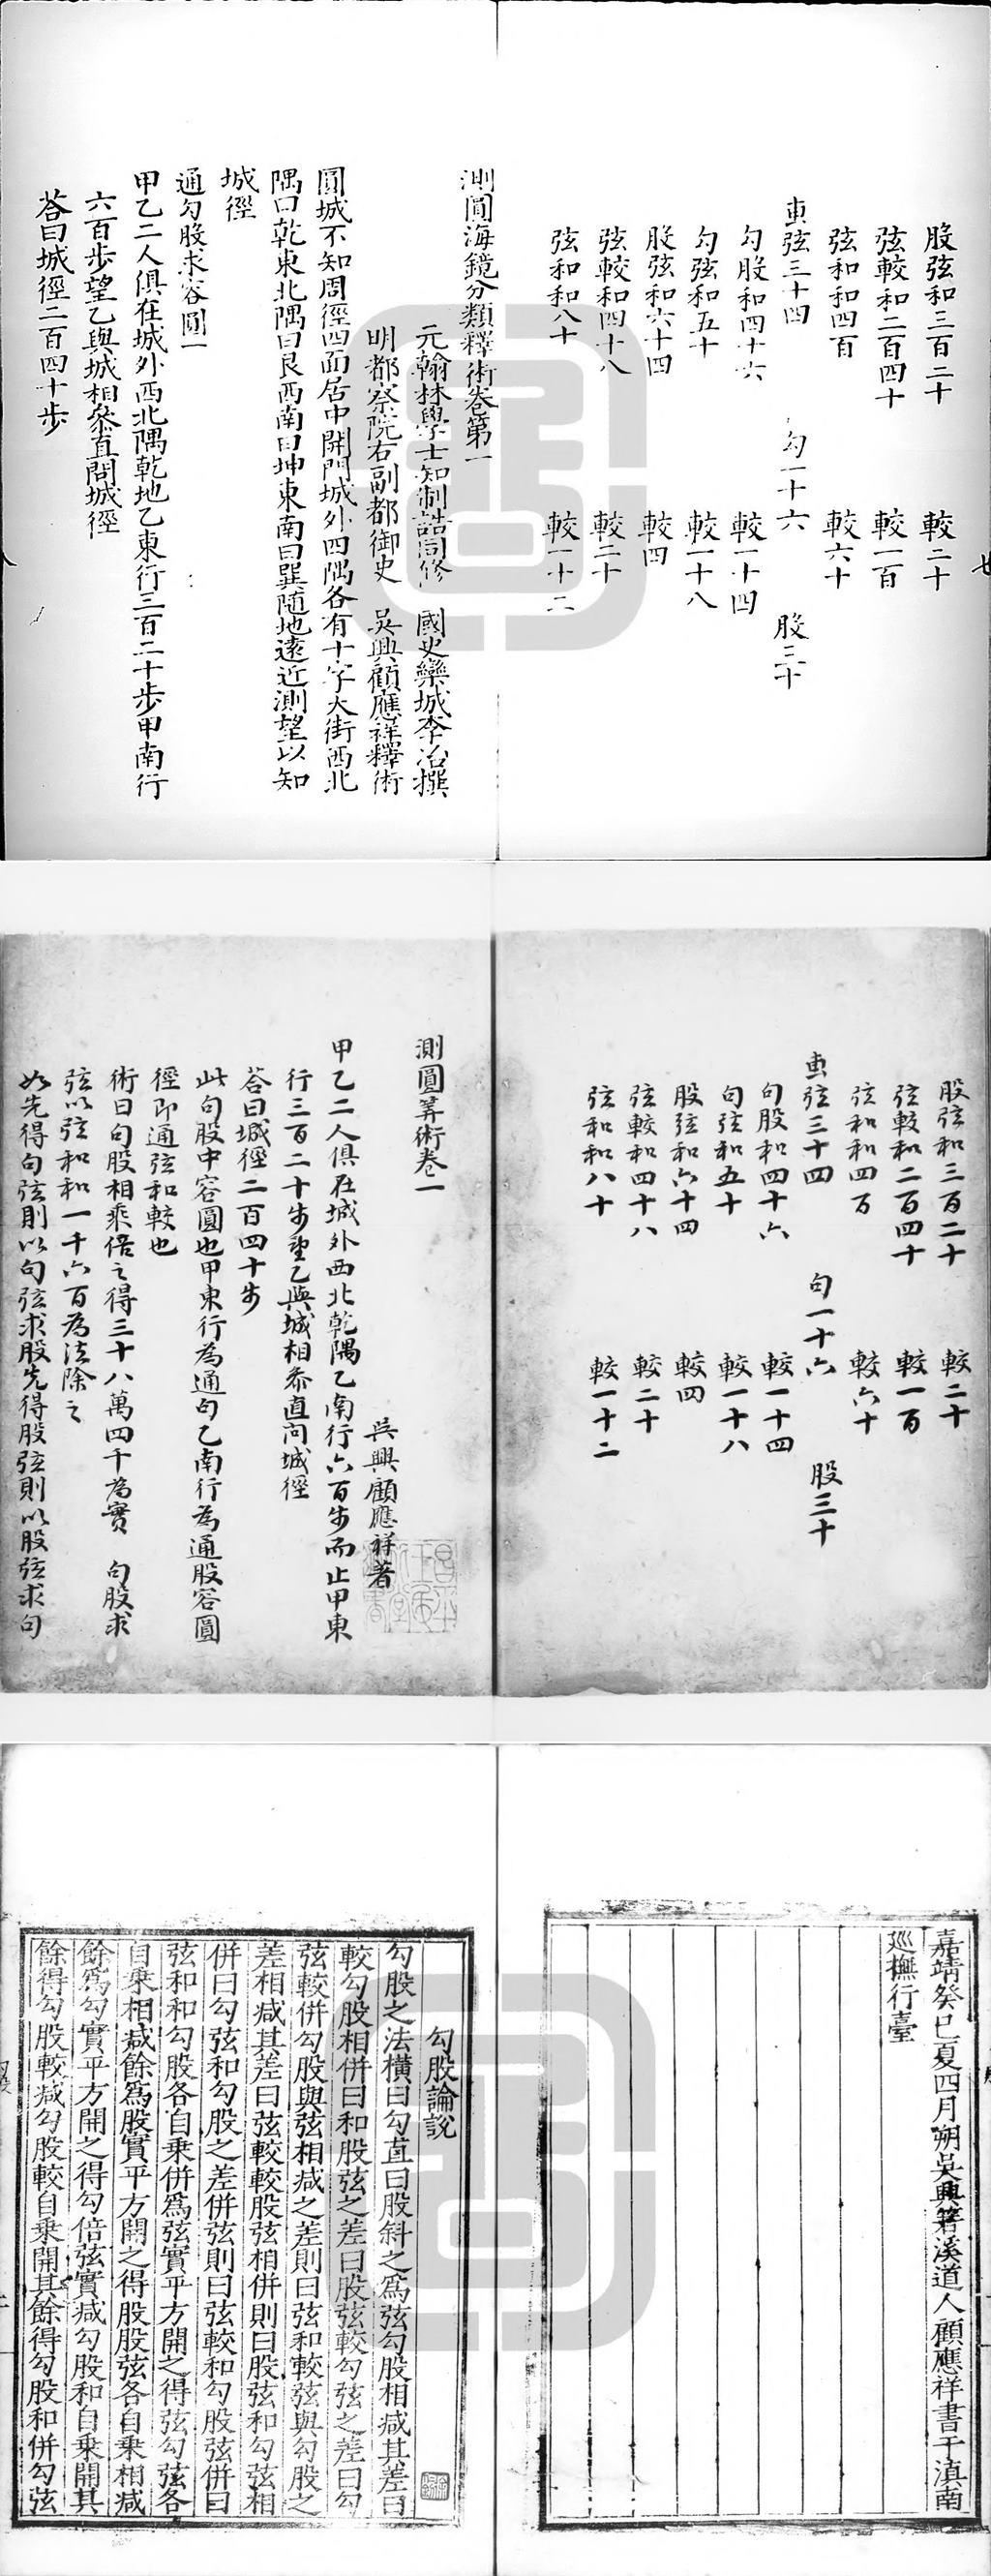 股弦和三百二十 較二十
弦較和二百四十 較一百
弦和和四百 較六十
叀弦三十四 勾一十六 股三十
勾股和四十六 較一十四
勾弦和五十 較一十八
股弦和六十四 較四
弦較和四十八 較二十
弦和和八十 較一十二
測圓海鏡分類釋術卷第一
元翰林學士知制誥同修 國史欒城李冶撰
明都察院右副都御史 吳興顧應祥釋術
圓城不知周徑四面居中開門城外四隅各有十字大街西北
隅曰乾東北隅曰艮西南曰坤東南曰巽隨地遠近測望以知
城徑
通勾股求容圓一
甲乙二人俱在城外西北隅乾地乙東行三百二十步甲南行
六百步望乙與城相叅直問城徑
荅曰城徑二百四十步
股弦和三百二十 較二十
弦較和二百四十 較一百
弦和和四百 較六十
叀弦三十四 句一十六 股三十
句股和四十六 較一十四
句弦和五十 較一十八
股弦和六十四 較四
弦較和四十八 較二十
弦和和八十 較一十二
測圓筭術卷一
吳興顧應祥著
甲乙二人俱在城外西北乾隅乙南行六百步而止甲東
行三百二十步望乙與城相叅直问城徑
荅曰城徑二百四十步
此句股中容圓也甲東行為通句乙南行為通股容圓
徑即通弦和較也
術曰句股相乘倍之得三十八萬四千為實 句股求
弦以弦和和一千六百為法除之
如先得句弦則以句弦求股先得股弦則以股弦求句
嘉靖癸巳夏四月朔吳興箬溪道人顧應祥書于滇南
廵撫行臺
勾股論說
勾股之法橫曰勾直曰股斜之爲弦勾股相减其差曰
較勾股相併曰和股弦之差曰股弦較勾弦之差曰勾
弦較併勾股與弦相减之差則曰弦和較弦與勾股之
差相减其差曰弦較較股弦相併則曰股弦和勾弦相
併曰勾弦和勾股之差併弦則曰弦較和勾股弦併曰
弦和和勾股各自乘併爲弦實平方開之得弦勾弦各
自乘相减餘爲股實平方開之得股股弦各自乘相减
餘爲勾實平方開之得勾倍弦實减勾股和自乘開其
餘得勾股較减勾股較自乘開其餘得勾股和併勾弦